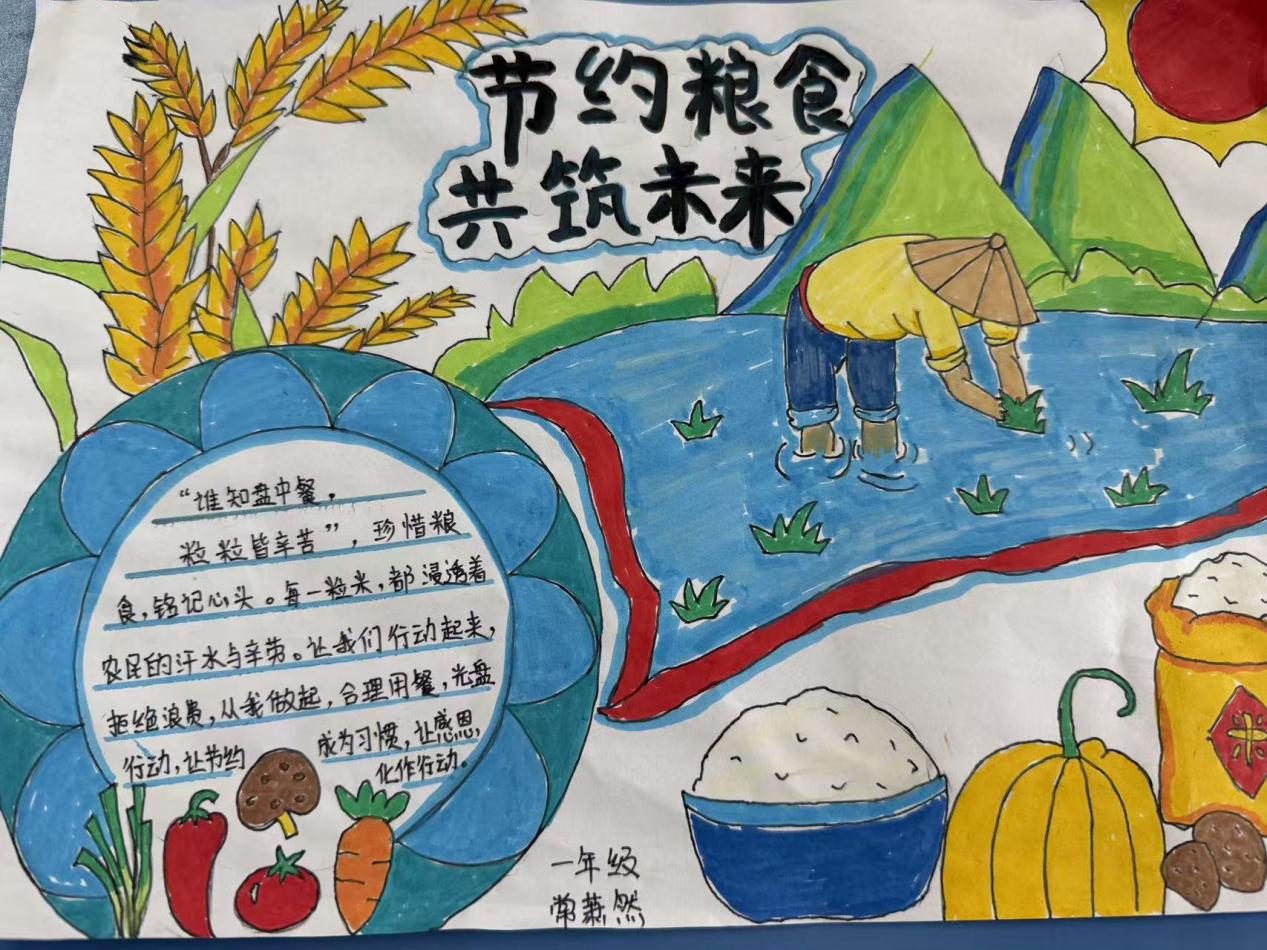 节约粮食
共筑未来
“谁知盘中餐，
粒粒皆辛苦”，珍惜粮
食，铭记心头。每一粒米，都浸透着
农民的汗水与辛劳。让我们行动起来，
拒绝浪费，从我做起，合理用餐，光盘
行动，让节约 成为习惯，让感恩，
化作行动。
米
一年级